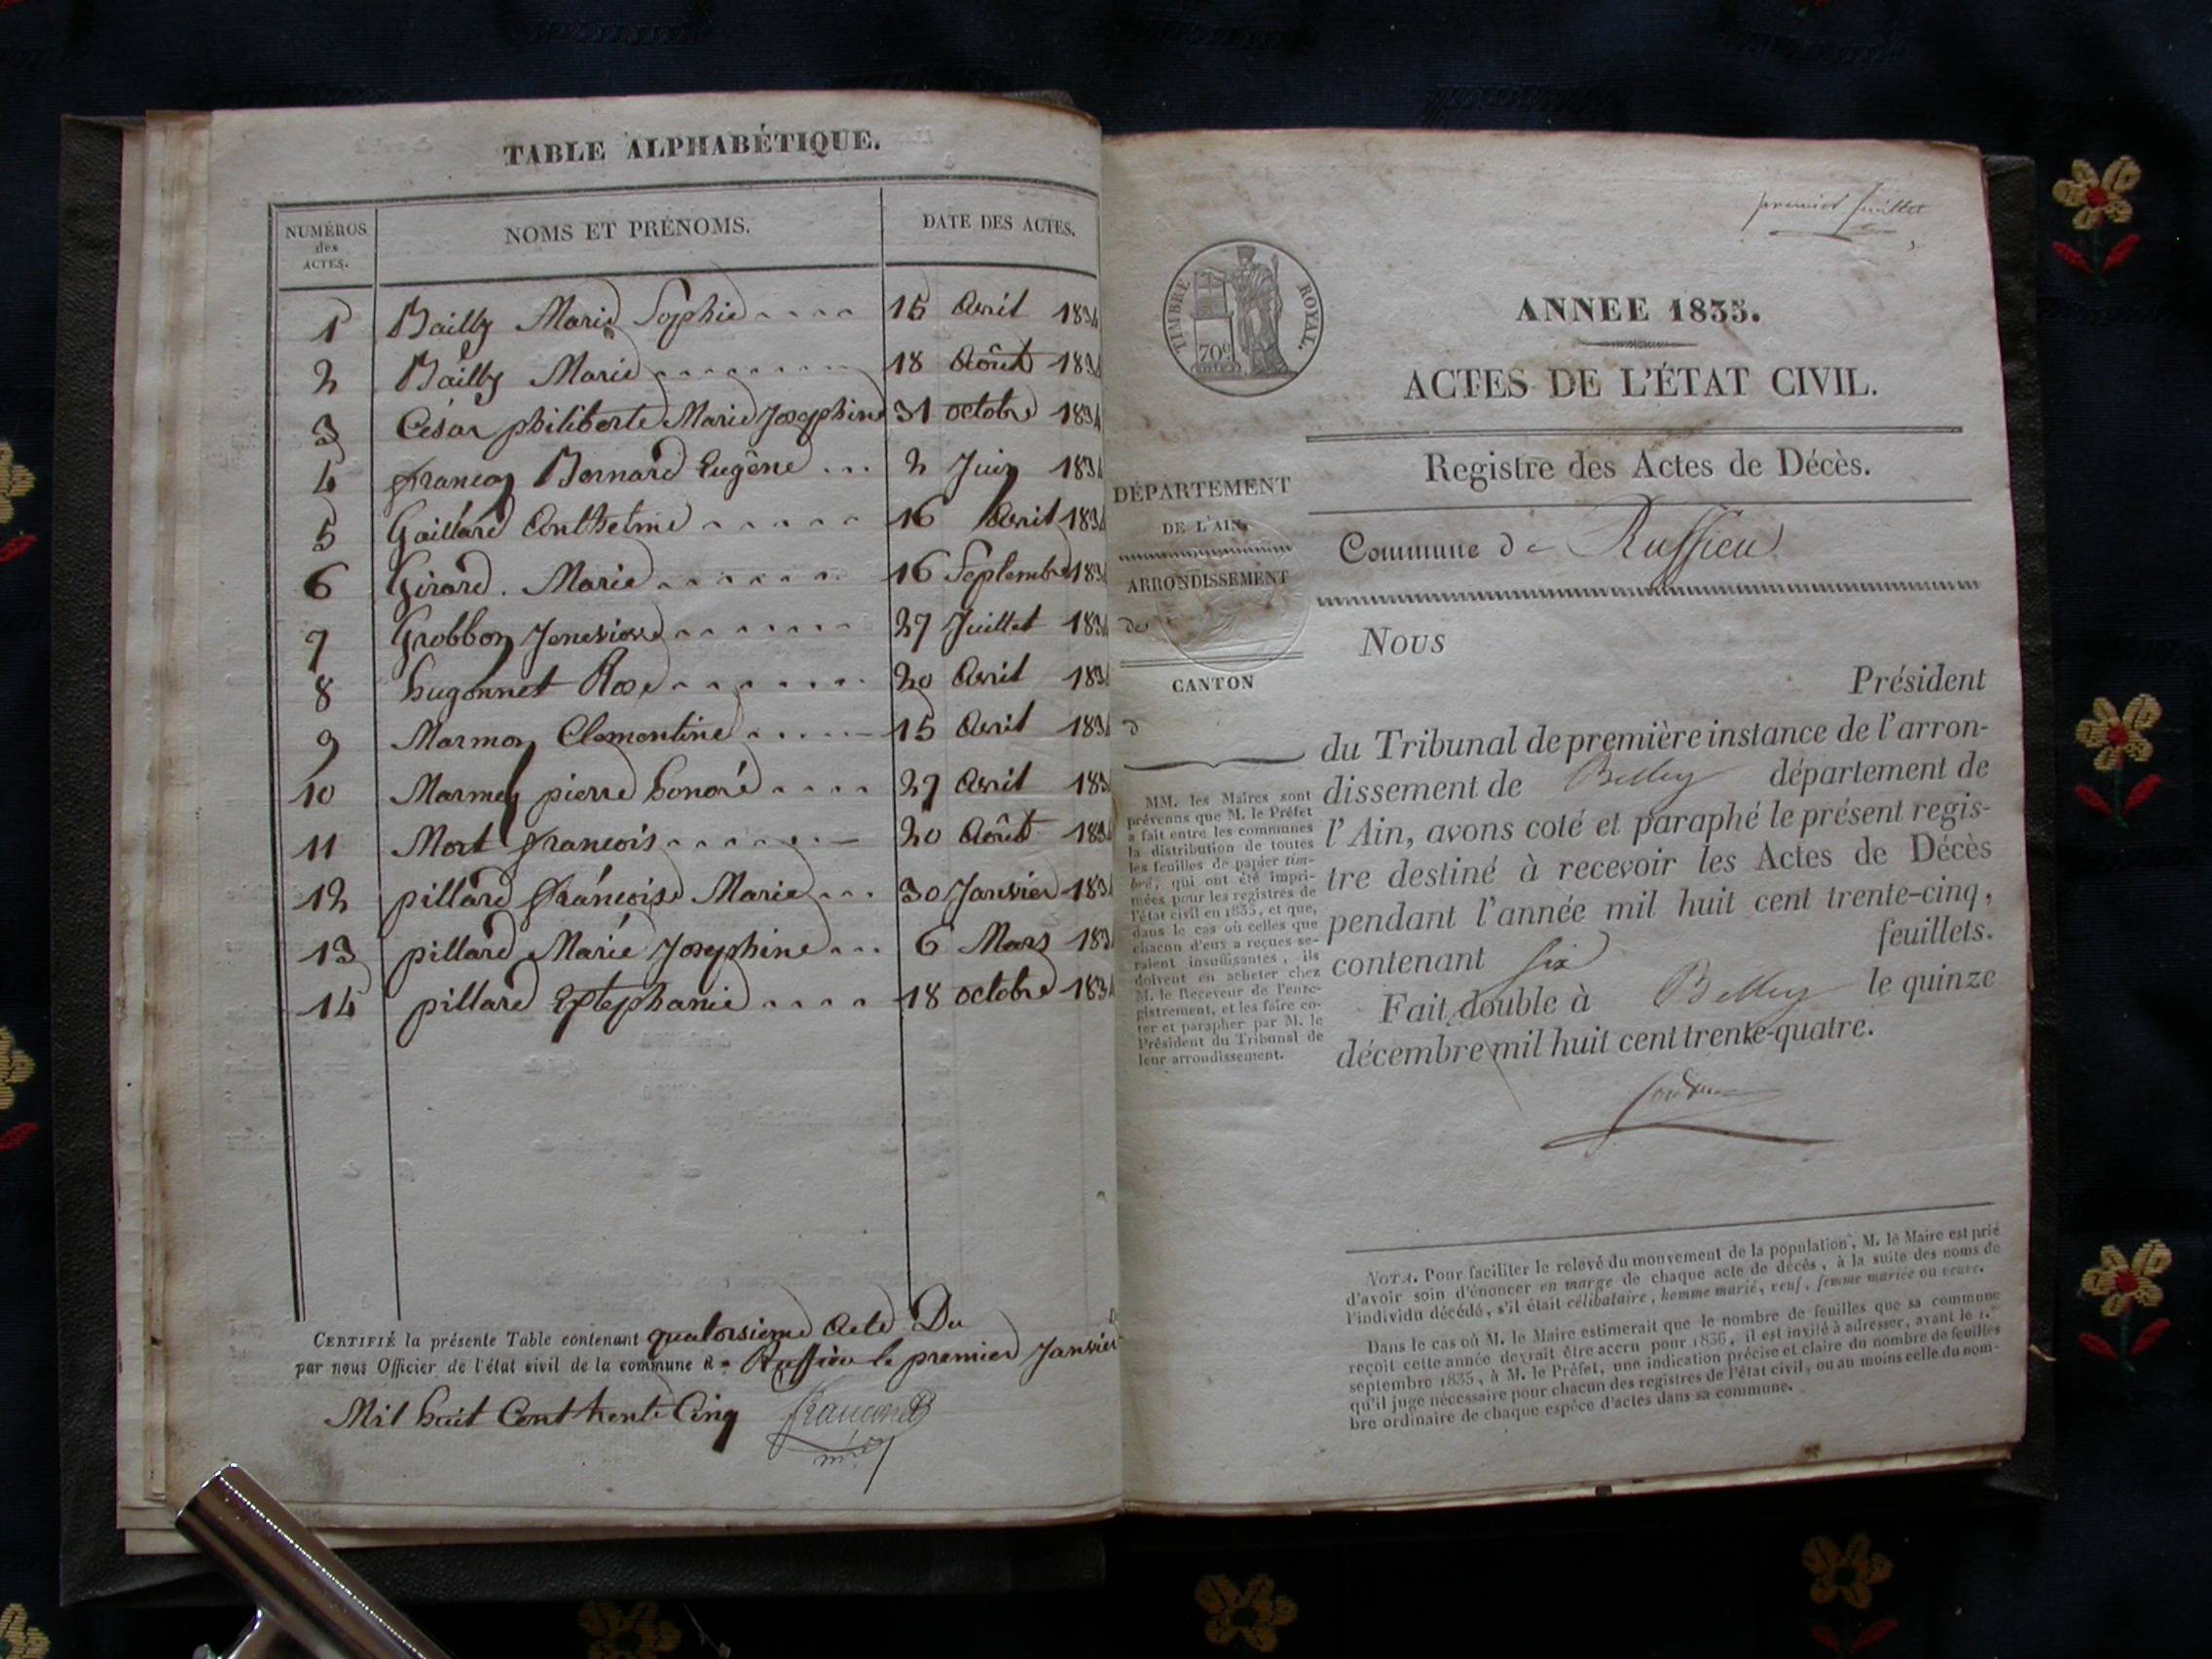 TABLE ALPHABÉTIQUE.
NUMÉROS des ACTES. NOMS ET PRÉNOMS. DATE DES ACTES.
1 Bailly Marie Sophie 15 Avril 1834
2 Bailly Marie 18 Août 1834
3 César philiberte Marie Josephine 31 octobre 1834
4 francon Bernard Eugêne 2 Juin 1834
5 Gaillard Anthelme 16 Avril 1834
6 Girard. Marie 16 Septembre 1834
7 Grobbon Jenevieve 27 Juillet 1834
8 hugonnet Rose 20 Avril 1834
9 Marmon Clementine 15 Avril 1834
10 pierre honoré 27 Avril 183
11 Mort francois 20 Août 183
12 pillard françoise Marie 30 Janvier 183
13 pillard Marie Josephine 6 Mars 183
14 pillard Estephanie 18 octobre 1834
CERTIFIÉ la présente Table contenant quatorsieme Acte Du
par nous Officier de l'état civil de la commune de Ruffieu le premier Janvier
Mil huit Cent trente Cinq
premier feuillet
TIMBRE ROYAL.
70c
ANNEE 1835.
ACTES DE L'ÉTAT CIVIL.
Registre des Actes de Décès.
DÉPARTEMENT
DE L'AIN,
ARRONDISSEMENT
de
CANTON
d
MM. les Maires sont
prévenus que M. le Préfet
a fait entre les communes
la distribution de toutes
les feuilles de papier tim-
bré, qui ont été impri-
mées pour les registres de
l'état civil en 1835, et que,
dans le cas où celles que
chacun d'eux a reçues se-
raient insuffisantes, ils
doivent en acheter chez
M. le Receveur de l'enre-
gistrement, et les faire co-
ter et parapher par M. le
Président du Tribunal de
leur arrondissement.
Commune de Ruffieu
Nous
Président
du Tribunal de première instance de l'arron-
dissement de Belley département de
l'Ain, avons coté et paraphé le présent regis-
tre destiné à recevoir les Actes de Décès
pendant l'année mil huit cent trente-cinq,
contenant six feuillets.
Fait double à Belley le quinze
décembre mil huit cent trente-quatre.
NOTA. Pour faciliter le relevé du mouvement de la population, M. le Maire est prié
d'avoir soin d'énoncer en marge de chaque acte de décès, à la suite des noms de
l'individu décédé, s'il était célibataire, homme marié, veuf, femme mariée ou veuve.
Dans le cas où M. le Maire estimerait que le nombre de feuilles que sa commune
reçoit cette année devrait être accru pour 1836, il est invité à adresser, avant le 1.er
septembre 1835, à M. le Préfet, une indication précise et claire du nombre de feuilles
qu'il juge nécessaire pour chacun des registres de l'état civil, ou au moins celle du nom-
bre ordinaire de chaque espèce d'actes dans sa commune.